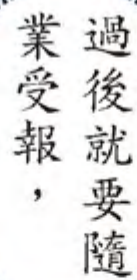 過後就要隨
業受報，